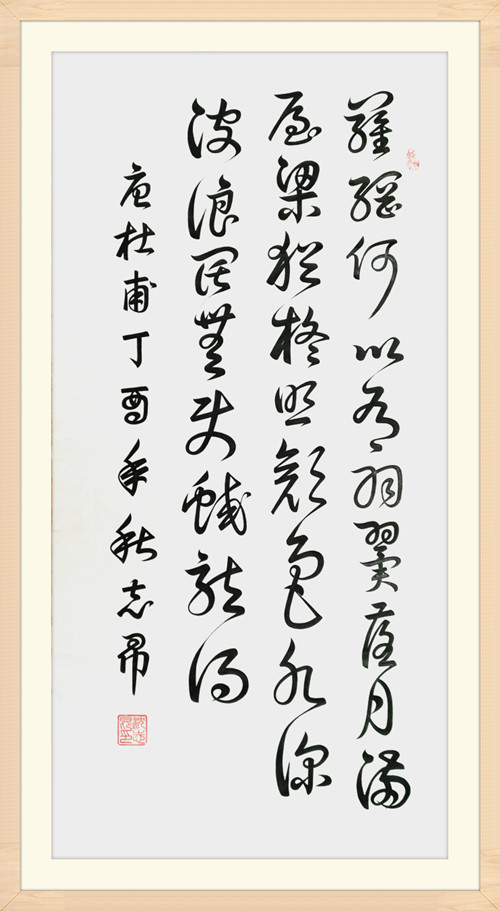 羅網何以有羽翼落月滿
屋梁猶疑照顏色水深
波浪闊無使蛟龍得
唐杜甫丁酉年秋志昂